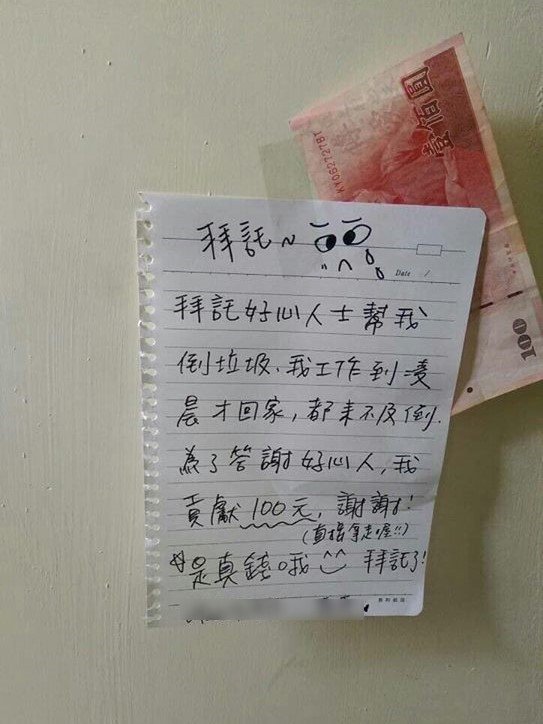 KY062727BT
壹佰圓
100
拜託~
Date /
拜託好心人士幫我
倒垃圾、我工作到凌
晨才回家，都來不及倒.
為了答謝好心人，我
貢獻100元，謝謝！
(直接拿走喔!!)
☆是真錢哦^^ 拜託了!